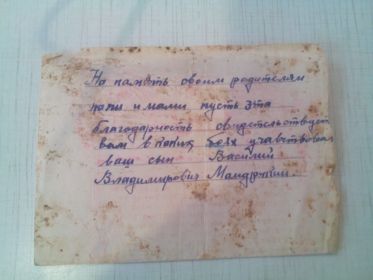 На память своим родителям
папи и мами пусть эта
благодарность свидетельствует
вам в каких боях участвовал
ваш сын Василий
Владимирович